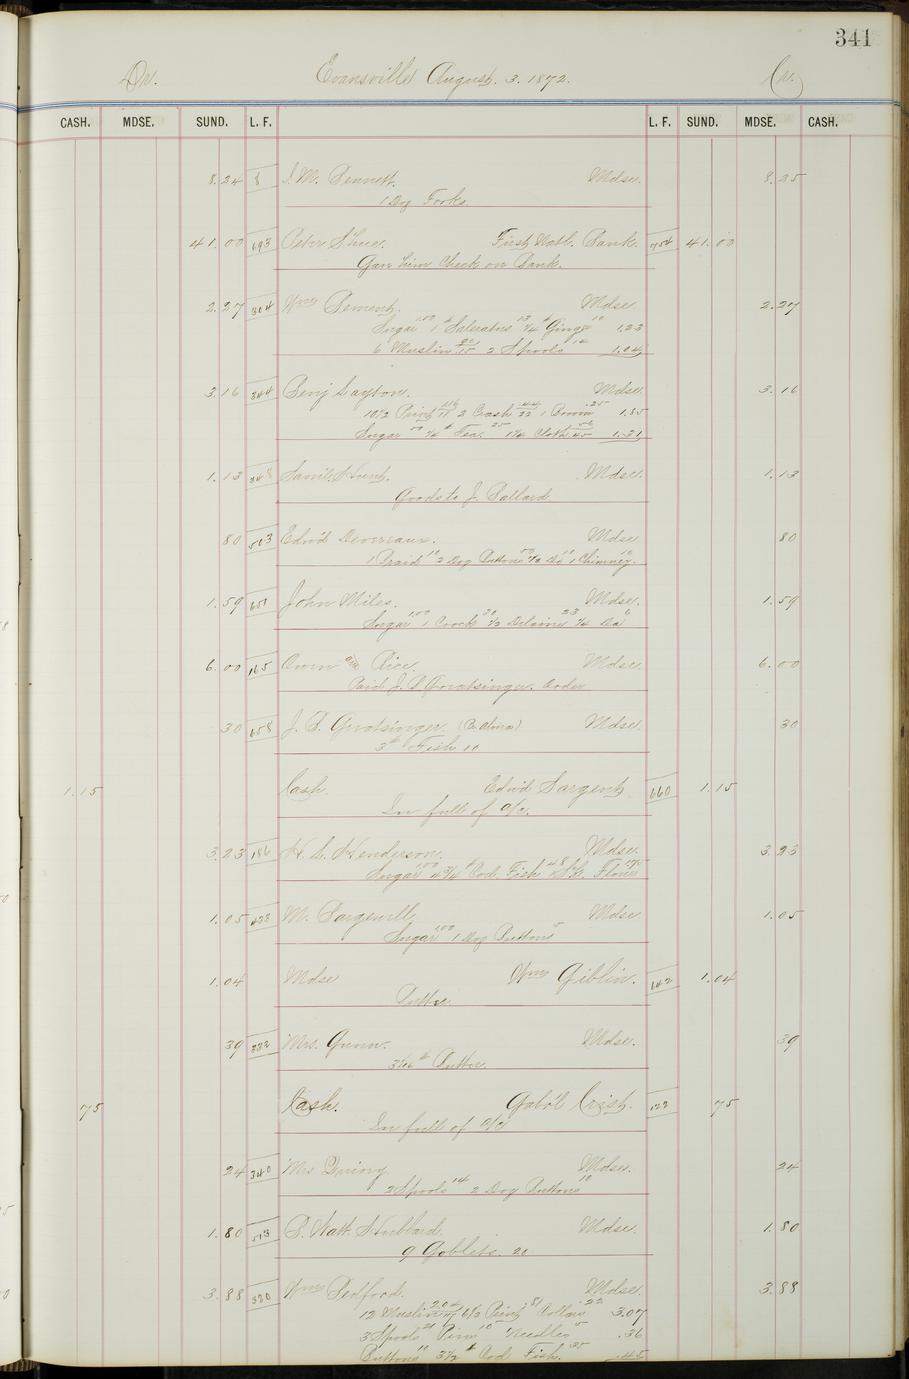 341
Dr. Evansville August. 3. 1872. Cr.
CASH. MDSE. SUND. L. F. L. F. SUND. MDSE. CASH.
8.24 8 J. M. Bennett. Mdse. 8.25
1 Doz Forks.
41.00 693 Peter Shue. First Natl. Bank. 704 41.00
Gave him Check on Bank.
2.27 304 Wm Bement. Mdse. 2.27
Sugar 1.00 1 # Saleratus 13 1/4 # Ginger 10 1.23
6 Muslin 90/15 2 Spools 14 1.04
3.16 344 Benj Layton. Mdse. 3.16
10 1/2 Print 1.16/11 2 Crash 44/22 1 Broom .25 1.85
Sugar 50 1/4 # Tea. 25 1 1/4 Cloth 56/45 1.31
1.13 348 Saml. Hunt. Mdse. 1.13
Goods to J. Ballard
80 513 Edwd Devereaux. Mdse 80
1 Braid 10 2 Doz Buttons 50 1/2 Do 10 1 Chimney. 10
1.59 651 John Miles. Mdse. 1.59
Sugar 1.00 1 Crock 30 1/2 Delaine 23 1/4 Do 6
6.00 165 Owen Rice. Mdse. 6.00
Paid J. B Gratsinger. Order
30 658 J. B. Gratsinger. Mdse 30
3 # Fish 10
1.15 Cash. Edwd Sargent 660 1.15
In full of a/c.
3.23 186 H. S. Henderson. Mdse. 3.23
Sugar 1.00 4 3/4 # Cod Fish 48 Sk. Flour 1.75
1.05 Mdse 1.05
Sugar 1.00 1 Doz Buttons 5
1.04 Mdse Wm Giblin. 642 1.04
Butter.
39 332 Mrs. Gunn. Mdse. 39
# Butter.
75 Cash. Gab'l Crist. 122 75
In full of a/c
24 340 Mrs Mdse. 24
2 Spools 14 2 Doz Buttons 10
1.80 513 B. Watt. Hubbard. Mdse. 1.80
9 Goblets. 20
3.88 320 Wm Bedford. Mdse. 3.88
12 Muslin 2.04/17 6 1/2 Print 81 Collar 22 3.07
3 Spools 21 Pins 10 Needles 5 .36
Buttons 10 3 1/2 # Cod Fish. 35 .45